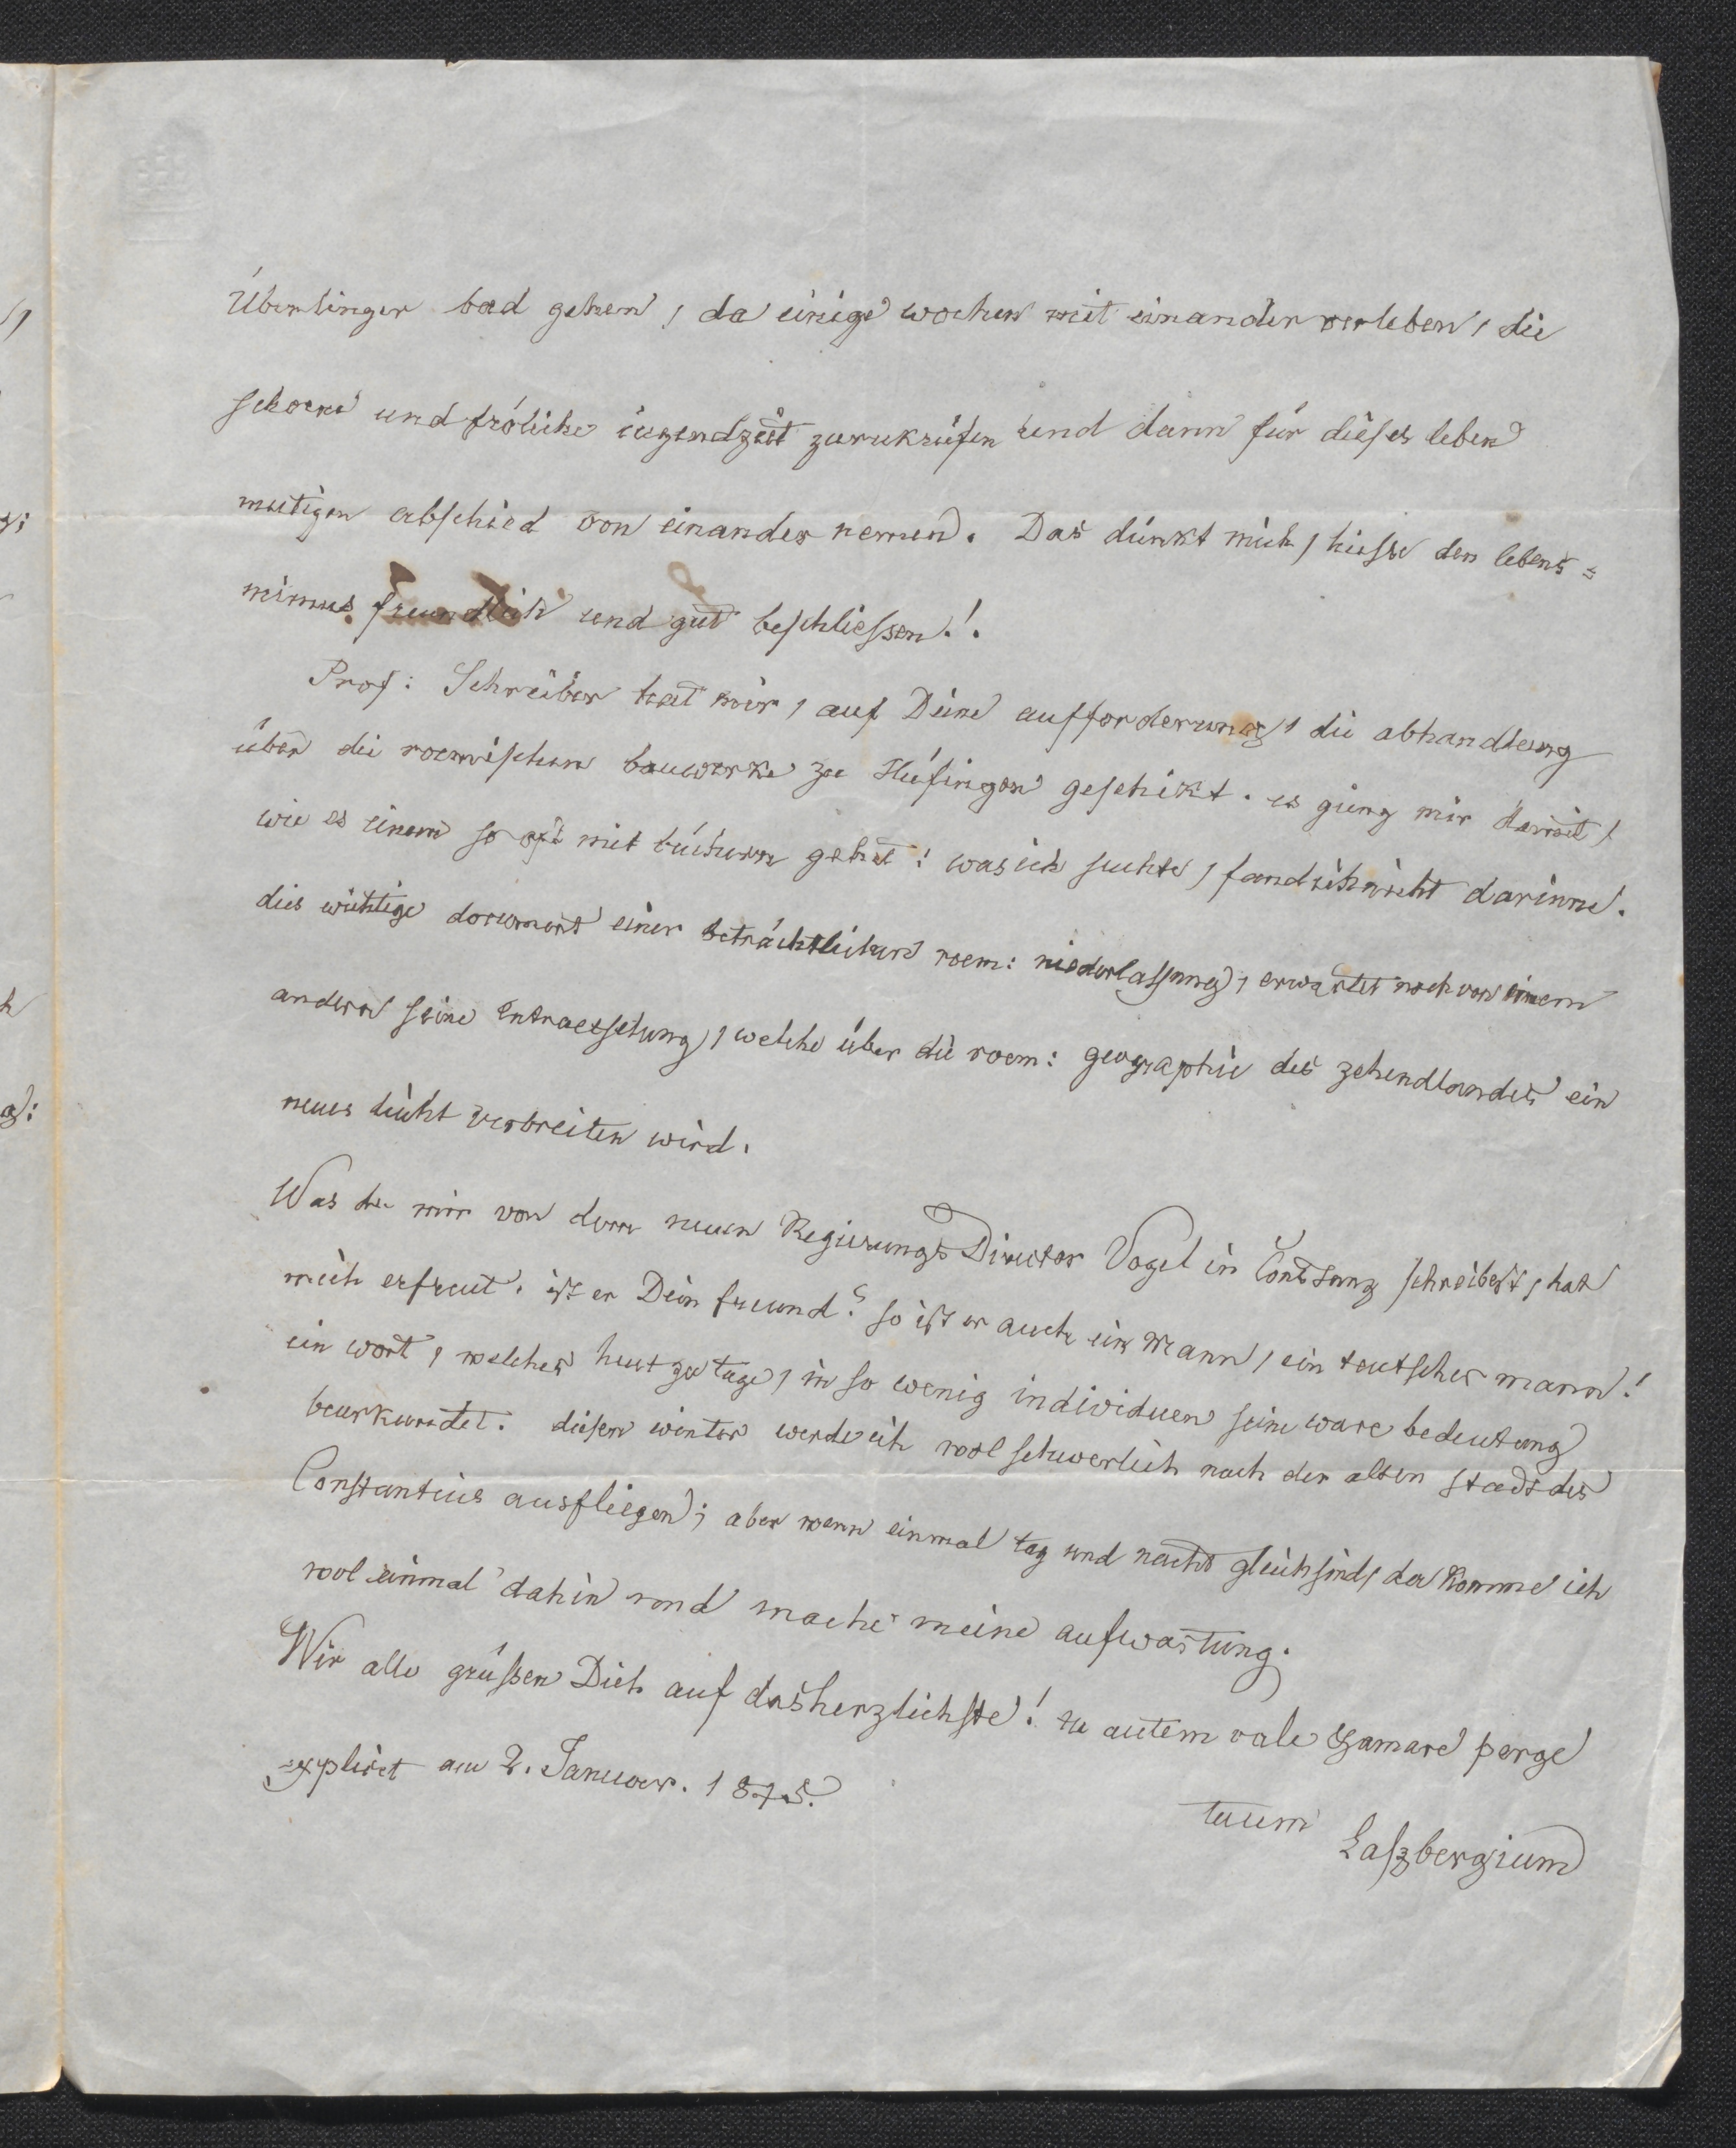 Überlinger bad gehen, da einige wochen mit einander verleben, die
schoene und fröliche iugendzeit zurukrufen und dann für dieses leben
mutigen abschied von einander nemen. Das dünkt mich, hiesse den lebens=
mimus freundlich und gut beschliessen!.
Prof: Schreiber hat mir, auf Deine aufforderung, die abhandlung
über die roemischen bauwerke zu Hüfingen geschikt. es gieng mir damit,
wie es einem so oft mit büchern gehet: was ich suchte, fand ich nicht darinne.
dies wichtige document einer beträchtlichen roem: niederlassung, erwartet noch von einem
andern seine entraetselung, welche über die roem: geographie des zehendlandes ein
neues licht verbreiten wird.
Was du mir von dem neuen Regierungs Director Vogel in Constanz schreibest, hat
mich erfreut. ist er Dein freund? so ist er auch ein Mann, ein teutscher mann!
ein wort, welches heut zu tage, in so wenig individuen seine ware bedeutung
beurkundet. diesen winter werde ich wol schwerlich nach der alten stadt des
Constantius ausfliegen; aber wenn einmal tag und nacht gleich sind, da komme ich
wol einmal dahin und mache meine aufwartung.
Wir alle grüßen Dich auf das herzlichste! tu autem vale & amare perge
explicit am 2. Januar. 1845.
tuum
Laszbergium